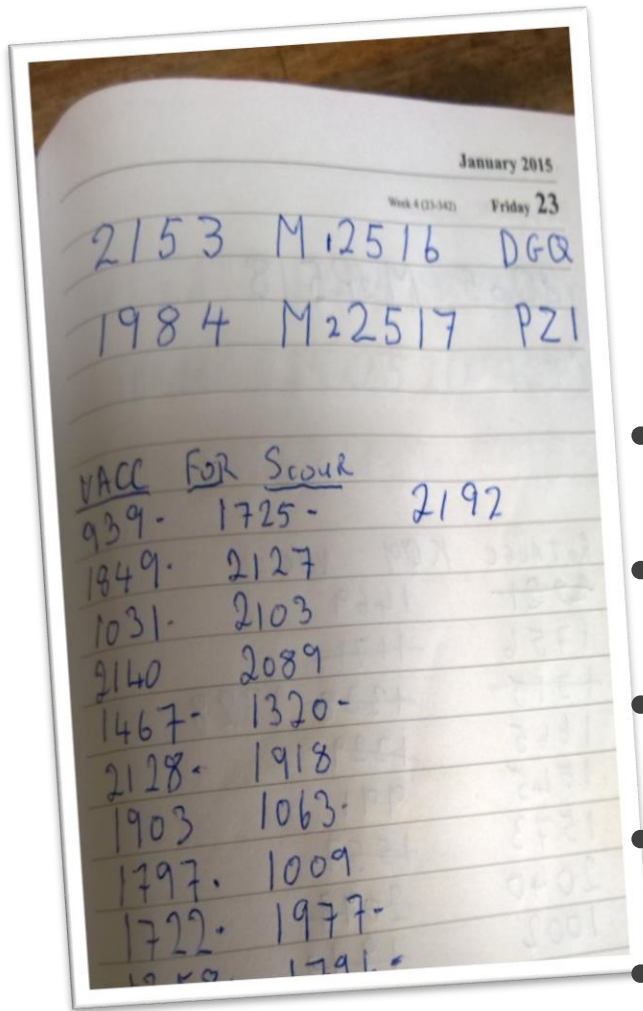 January 2015
Week 4 (23-342) Friday 23
2153 M1 2516 DGQ
1984 M2 2517 PZI
VACC FOR SCOUR
939- 1725- 2192
1849. 2127
1031. 2103
2140 2089
1467- 1320-
2128. 1918
1903 1063.
1797. 1009
1722. 1977-
1791.